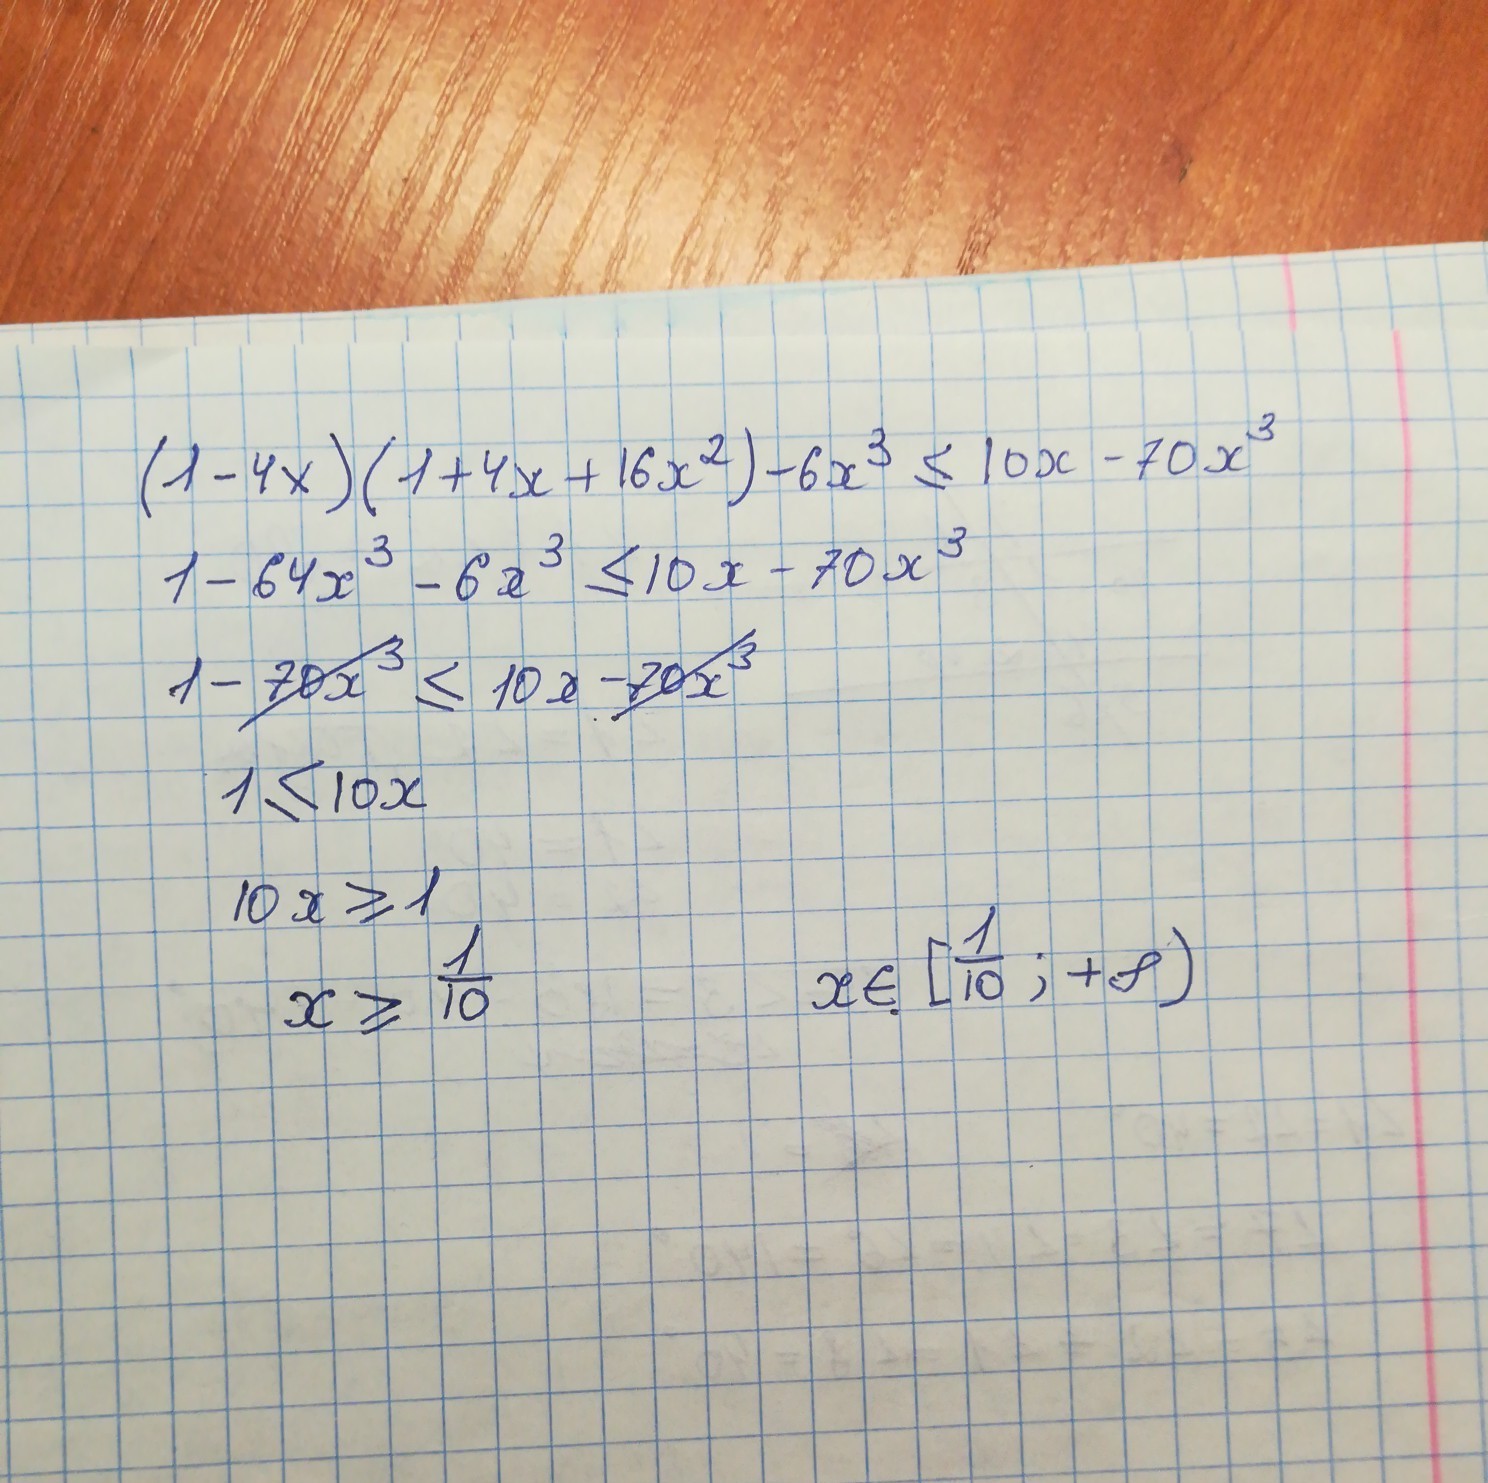 (1-4x)(1+4x+16x²)-6x³≤10x-70x³
1-64x³-6x³≤10x-70x³
1-70x³≤10x-70x³
1≤10x
10x≥1
x≥1/10
x∈[1/10;+∞)